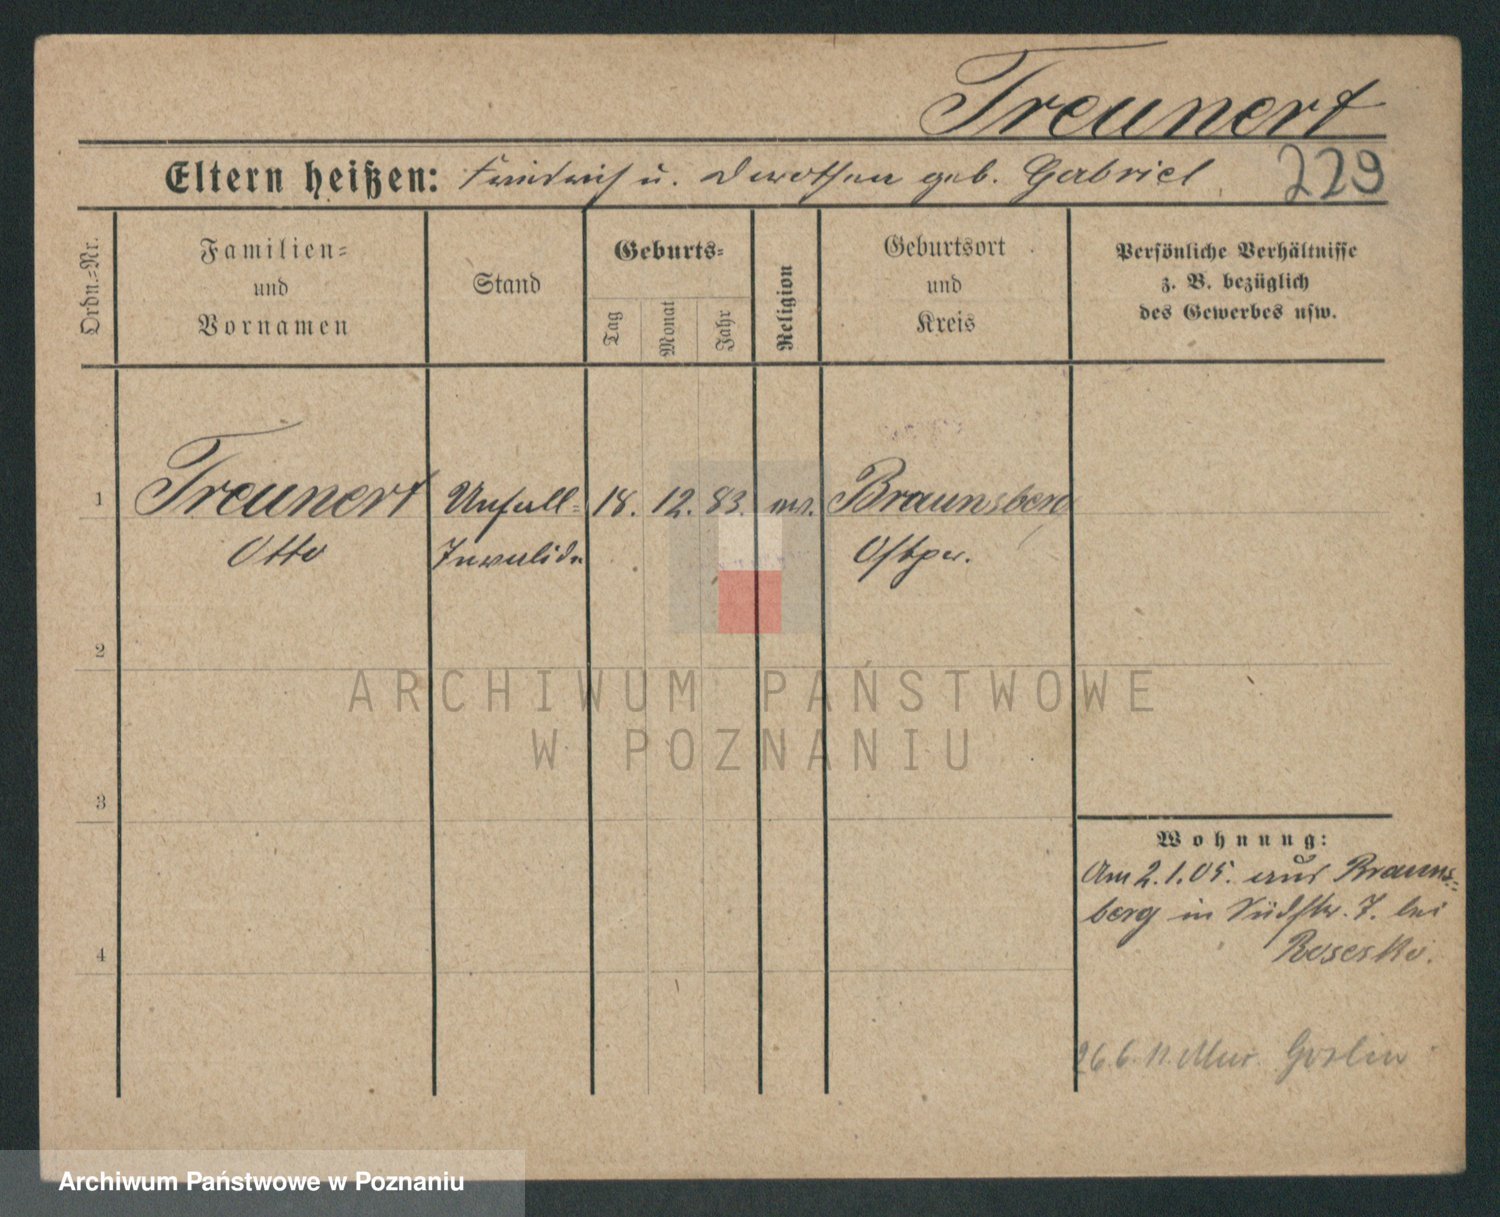 Treunert
Eltern heißen: Friedrich u. Dorothea geb. Gabriel
229
Ordn.=Nr.
Familien=
und
Vornamen
Stand
Geburts=
Tag
Monat
Jahr
Religion
Geburtsort
und
Kreis
Persönliche Verhältnisse
z. B. bezüglich
des Gewerbes usw.
1
Treunert
Otto
Unfall=
Invalide
18. 12. 83.
ev.
Braunsberg
Ostpr.
2
3
4
Wohnung:
Am 2.1.05. aus Brauns=
berg in Südstr. 7. bei
26.6.11. Mur. Goslin
ARCHIWUM PAŃSTWOWE
W POZNANIU
Archiwum Państwowe w Poznaniu